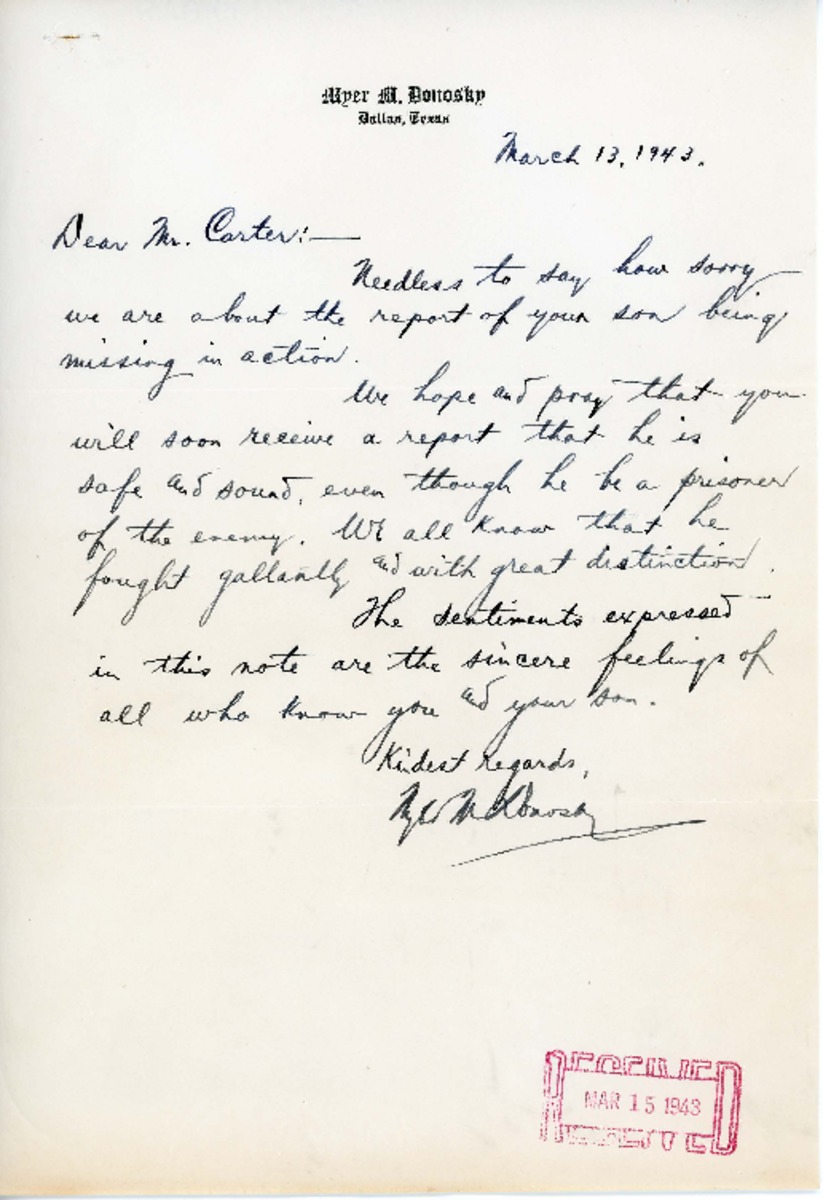 Myer M. Donosky
Dallas, Texas
March 13, 1943.
Dear Mr. Carter:—
Needless to say how sorry
we are about the report of your son being
missing in action.
We hope and pray that you
will soon receive a report that he is
safe and sound, even though he be a prisoner
of the enemy. We all know that he
fought gallantly and with great distinction.
The sentiments expressed
in this note are the sincere feelings of
all who know you and your son.
Kindest regards,
Myer M Donosky
RECEIVED
MAR 15 1943